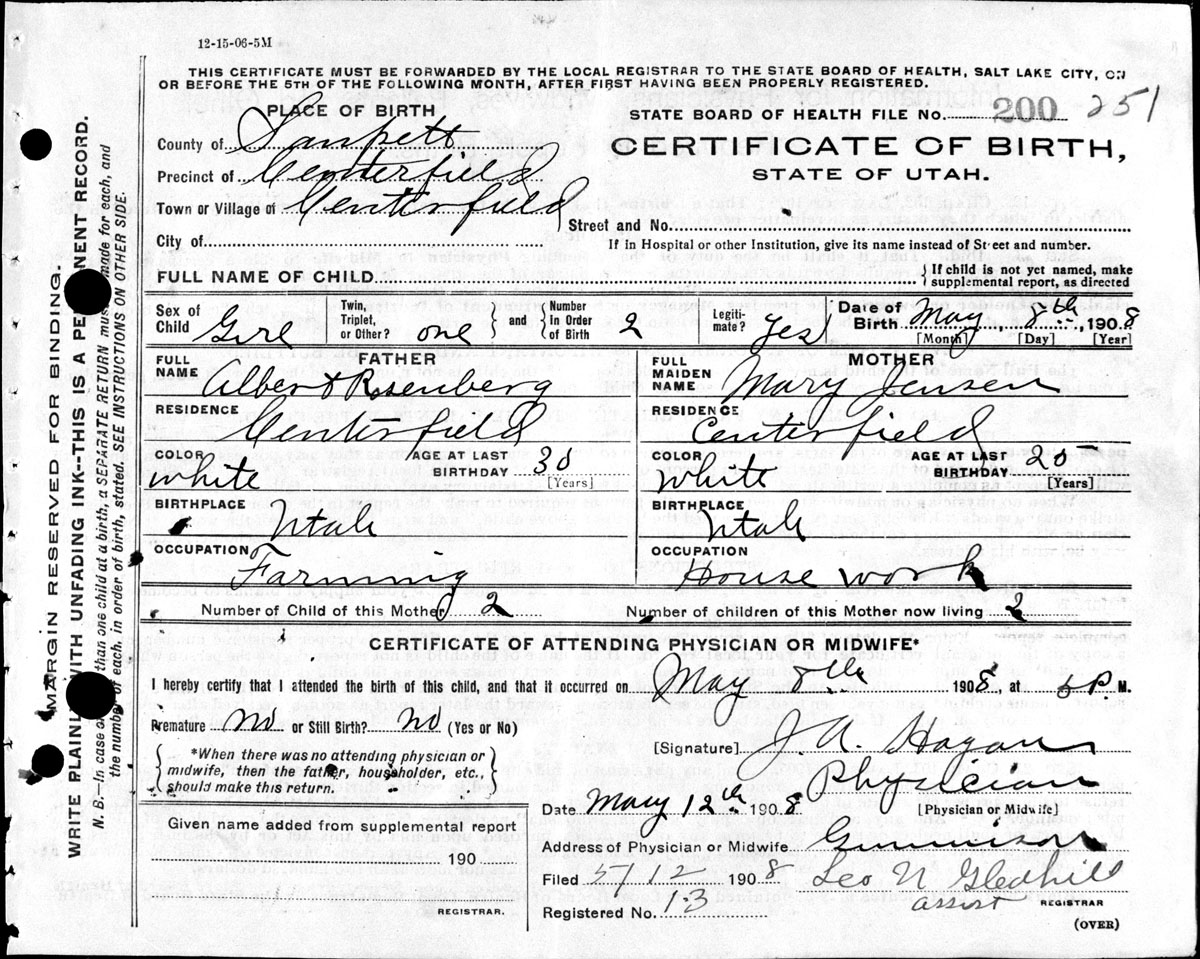 12-15-06-5M
THIS CERTIFICATE MUST BE FORWARDED BY THE LOCAL REGISTRAR TO THE STATE BOARD OF HEALTH, SALT LAKE CITY, ON
OR BEFORE THE 5TH OF THE FOLLOWING MONTH, AFTER FIRST HAVING BEEN PROPERLY REGISTERED.
PLACE OF BIRTH
STATE BOARD OF HEALTH FILE No. 200 251
County of Sanpett
CERTIFICATE OF BIRTH,
Precinct of Centerfield
STATE OF UTAH.
Town or Village of Centerfield
Street and No.
City of
If in Hospital or other Institution, give its name instead of Street and number.
FULL NAME OF CHILD
If child is not yet named, make
supplemental report, as directed
Sex of Child Girl Twin, Triplet, or Other? one and Number In Order of Birth 2 Legiti-mate? Yes Date of Birth May 8th 1908
[Month] [Day] [Year]
FATHER
MOTHER
FULL NAME Albert Rosenberg
FULL MAIDEN NAME Mary Jensen
RESIDENCE Centerfield
RESIDENCE Centerfield
COLOR White AGE AT LAST BIRTHDAY 30 [Years]
COLOR White AGE AT LAST BIRTHDAY [Years]
BIRTHPLACE Utah
BIRTHPLACE Utah
OCCUPATION Farming
OCCUPATION House work
Number of Child of this Mother 2
Number of children of this Mother now living 2
CERTIFICATE OF ATTENDING PHYSICIAN OR MIDWIFE*
I hereby certify that I attended the birth of this child, and that it occurred on May 8th 1908, at 6 P M.
Premature No or Still Birth? No (Yes or No)
*When there was no attending physician or
midwife, then the father, householder, etc.,
should make this return.
[Signature] J. A. Hagan
Physician
[Physician or Midwife]
Date May 12th 1908
Given name added from supplemental report
190
REGISTRAR.
Address of Physician or Midwife Gunnison
Filed 5/12 1908 Leo N Gledhill
assist REGISTRAR
Registered No. 13
(OVER)
MARGIN RESERVED FOR BINDING.
WRITE PLAINLY WITH UNFADING INK--THIS IS A PERMANENT RECORD.
N. B.--In case of more than one child at a birth, a SEPARATE RETURN must be made for each, and
the number of each, in order of birth, stated. SEE INSTRUCTIONS ON OTHER SIDE.